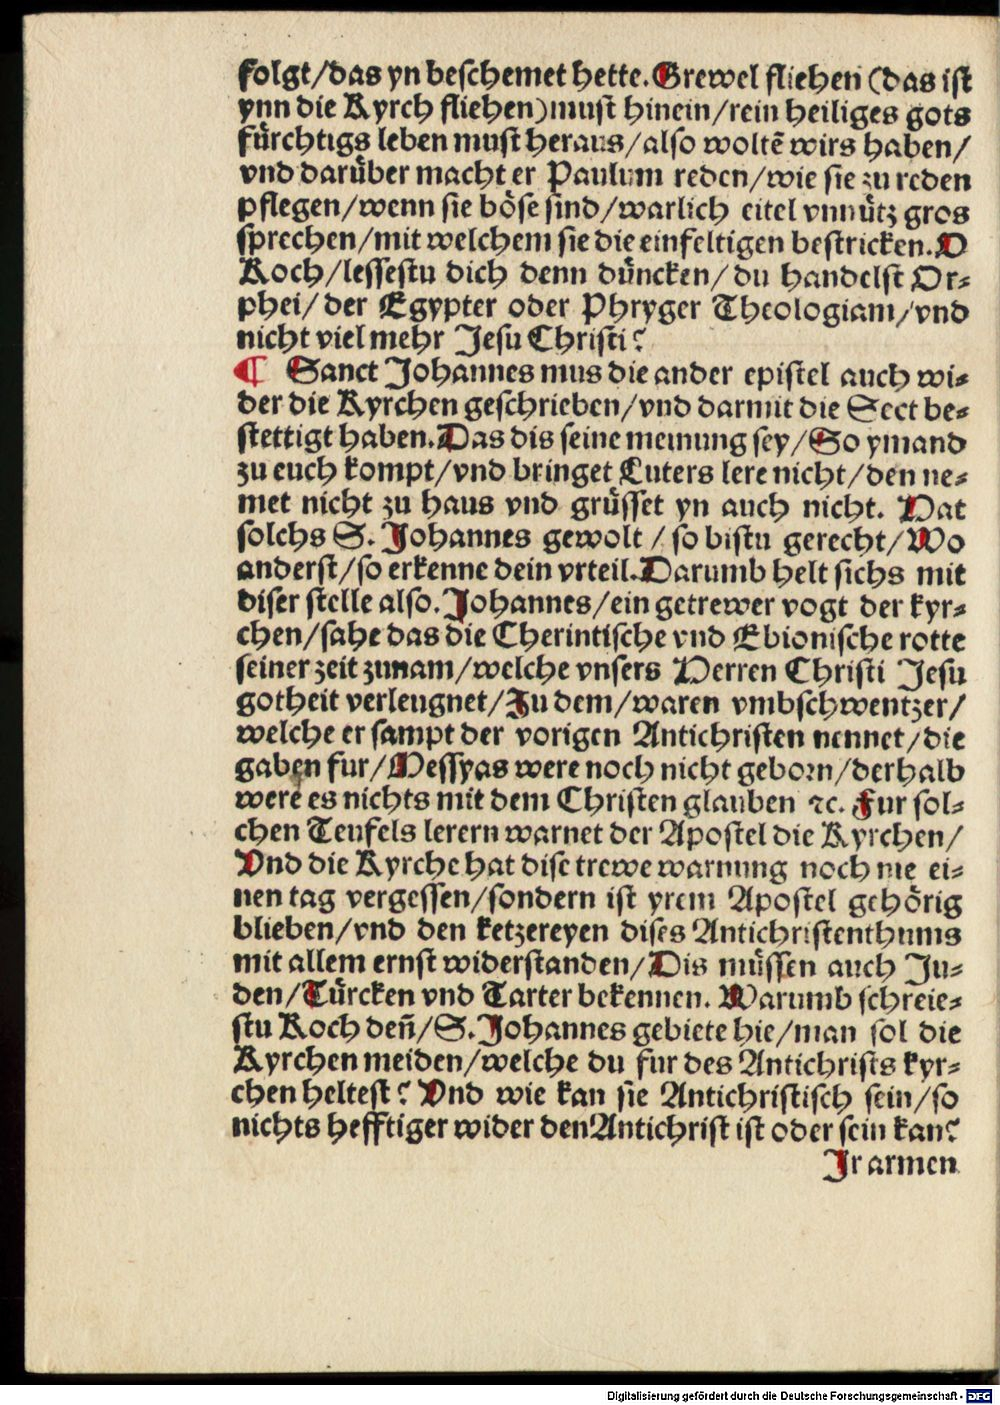 folgt/das yn beschemet hette. Grewel fliehen (das ist
ynn die Kyrch fliehen) must hinein/rein heiliges gots
fürchtigs leben must heraus/also woltē wirs haben/
vnd darüber macht er Paulum reden/wie sie zu reden
pflegen/wenn sie böse sind/warlich eitel vnnütz gros
sprechen/mit welchem sie die einfeltigen bestricken. O
Koch/lessestu dich denn düncken/ du handelst Or-
phei/ der Egypter oder Phryger Theologiam/vnd
nicht viel mehr Jesu Christi?
¶ Sanct Johannes mus die ander epistel auch wi-
der die Kyrchen geschrieben/vnd darmit die Sect be-
stettigt haben. Das dis seine meinung sey/So ymand
zu euch kompt/vnd bringet Luters lere nicht/den ne-
met nicht zu haus vnd grüsset yn auch nicht. Hat
solchs S. Johannes gewolt / so bistu gerecht/Wo
anderst/so erkenne dein vrteil. Darumb helt sichs mit
diser stelle also. Johannes/ein getrewer vogt der kyr-
chen/sahe das die Cherintische vnd Ebionische rotte
seiner zeit zunam/welche vnsers Herren Christi Jesu
gotheit verleugnet/Zu dem/waren vmbschwentzer/
welche er sampt der vorigen Antichristen nennet/die
gaben fur/Messyas were noch nicht geborn/derhalb
were es nichts mit dem Christen glauben ⁊c. Fur sol-
chen Teufels lerern warnet der Apostel die Kyrchen/
Vnd die Kyrche hat dise trewe warnung noch nie ei-
nen tag vergessen/sondern ist yrem Apostel gehörig
blieben/vnd den ketzereyen dises Antichristenthums
mit allem ernst widerstanden/Dis müssen auch Ju-
den/Türcken vnd Tarter bekennen. Warumb schreie-
stu Koch deñ/S. Johannes gebiete hie/man sol die
Kyrchen meiden/welche du fur des Antichrists kyr-
chen heltest? Vnd wie kan sie Antichristisch sein/so
nichts hefftiger wider den Antichrist ist oder sein kan?
Jr armen
Digitalisierung gefördert durch die Deutsche Forschungsgemeinschaft - DFG